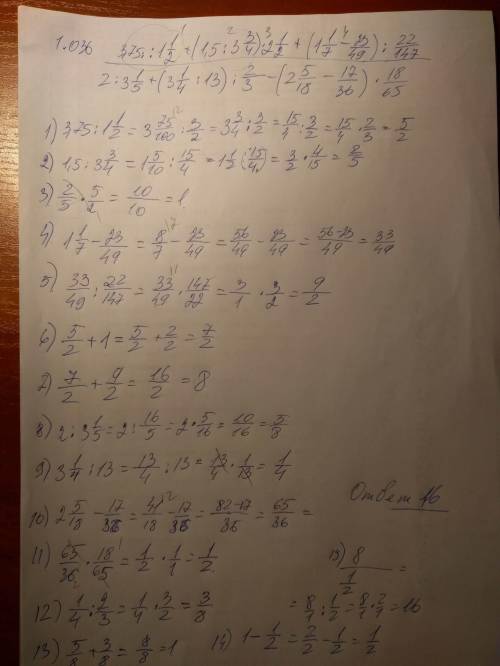 1.036 3,75 : 1 1/2 + (1,5 : 3 3/4) · 2 1/2 + (1 1/7 - 23/49) : 22/147
2 : 3 1/5 + (3 1/4 : 13) : 2/3 - (2 5/18 - 17/36) · 18/65
1) 3,75 : 1 1/2 = 3 75/100 : 3/2 = 3 3/4 : 3/2 = 15/4 : 3/2 = 15/4 · 2/3 = 5/2
2) 1,5 : 3 3/4 = 1 5/10 : 15/4 = 1 1/2 (: 15/4) = 3/2 · 4/15 = 2/5
3) 2/5 · 5/2 = 10/10 = 1
4) 1 1/7 - 23/49 = 8/7 - 23/49 = 56/49 - 23/49 = 56-23/49 = 33/49
5) 33/49 : 22/147 = 33/49 · 147/22 = 3/1 · 3/2 = 9/2
6) 5/2 + 1 = 5/2 + 2/2 = 7/2
7) 7/2 + 9/2 = 16/2 = 8
8) 2 : 3 1/5 = 2 : 16/5 = 2 · 5/16 = 10/16 = 5/8
9) 3 1/4 : 13 = 13/4 : 13 = 13/4 · 1/13 = 1/4
10) 2 5/18 - 17/36 = 41/18 - 17/36 = 82-17/36 = 65/36 =
Ответ 16
11) 65/36 · 18/65 = 1/2 · 1/1 = 1/2
12) 1/4 : 2/3 = 1/4 · 3/2 = 3/8
13) 5/8 + 3/8 = 8/8 = 1
14) 1 - 1/2 = 2/2 - 1/2 = 1/2
15) 8 / 1/2 =
= 8/1 : 1/2 = 8/1 · 2/1 = 16